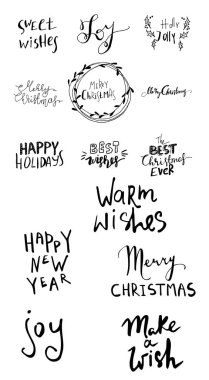 Sweet
wishes
Joy
Holly
Jolly
Merry
Christmas
MERRY
CHRISTMAS
Merry Christmas
HAPPY
HOLIDAYS
BEST
wishes
The
BEST
Christmas
EVER
WARM
WISHES
HAPPY
NEW
YEAR
Merry
CHRISTMAS
joy
Make
a
Wish